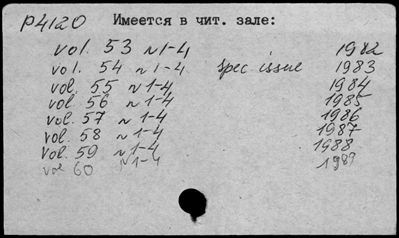 P4120 Имеется в чит. зале:
vol. 53 N 1-4 1982
vol. 54 N 1-4 spec issue 1983
vol. 55 N 1-4 1984
vol. 56 N 1-4 1985
vol. 57 N 1-4 1986
vol. 58 N 1-4 1987
vol. 59 N 1-4 1988
vol 60 N 1-4 1989